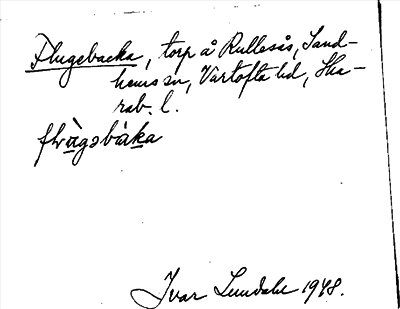 Flugebacka, torp å Rullesås, Sand-
hems sn, Vartofta hd, Ska-
rab. l.
flùgəbàka
Ivar Lundahl 1948.